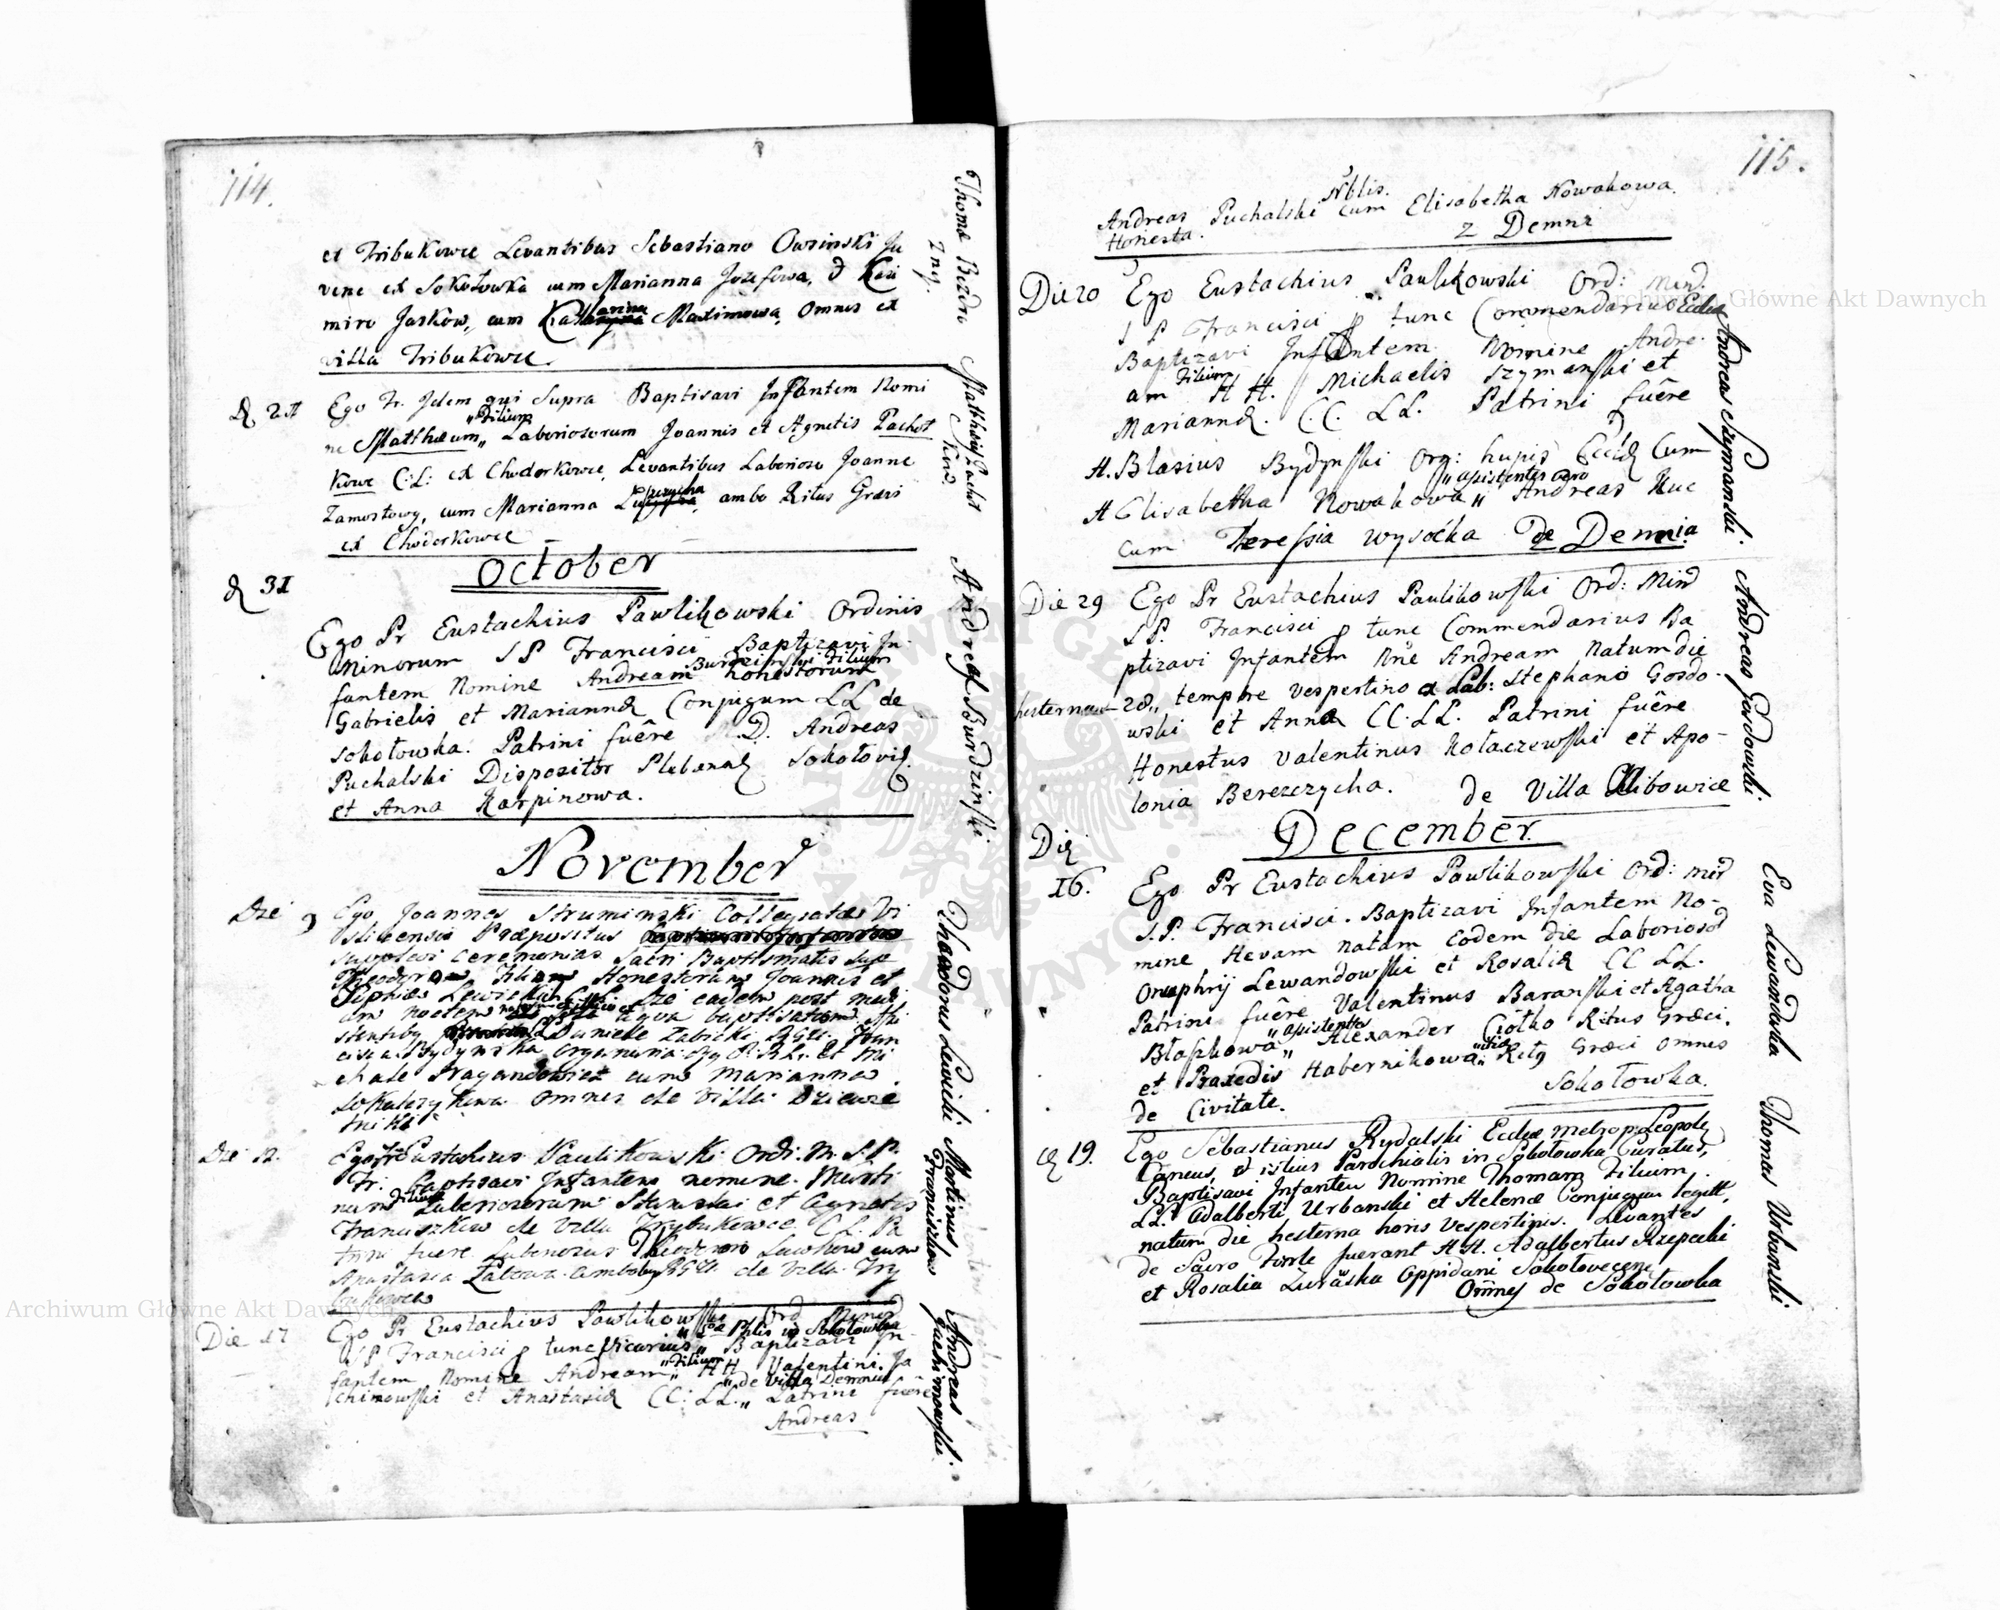 114.
et Tribukowce Levantibus Sebastiano Owsinski Ju
vene ex Sokołowka cum Marianna Jozefowa, & Kazi
miro Jaskow, cum Katharina Maximowa, Omnes ex
villa Tribukowce
Thomæ Bezdro
D 21 Ego Fr. Idem qui Supra Baptisavi Infantem Nomi
ne Matthæum „Filium„ Laboriosorum Joannis et Agnetis Pachot
Kowe C: L: ex Chodorkowce, Levantibus Laborioso Joanne
Zamostowy, cum Marianna ambo Ritus Græci
ex Chodorkowce
October
D 31
Ego Pr Eustachius Pawlikowski Ordinis
Minorum S P Francisci Baptizavi In-
fantem Nomine Andream Burdzinski Filium honestorum
Gabrielis et Mariannæ Conjugum LL de
Sokołowka. Patrini fuêre M. D. Andreas
Puchalski Dispozitor Plebanæ Sokołovie.
et Anna Karpinowa.
Andreas Burdzinski
November
Die 9 Ego Joannes Struminski Collegiatæ Vi
sliciensis Præpositus
supplevi Ceremonias Sacri Baptismatis super
Theodorum Filium Honestorum Joannis et
Sophiæ Lewickich die eadem post medi
am noctem aqua baptisatum Assi
stentibus Daniele Zabicki R. Gr. Fran
cisca Bydynska Organaria
chale Dragandowicz cum Marianna
Sokalczykowa Omnes de Villa Dziewie
tniki
Thæodorus Lewicki
Die 12. Ego Fr Eustachius Paulikowski Ord: M. S. P.
Fr. Baptisavi Infantem nomine Marti
num Filium Laboriosorum Stanislai et Agnetis
Franciszkow de Villa Trybukowce C. L. Pa
trini fuere Laboriosus Theodorus Lawkow cum
Anastasia ambo R. G. de Villa Try
bukowce
Martinus Franciszkow
Die 17 Ego Pr Eustachius Pawlikowski Ord Minor
S P Francisci p tunc Vicarius Baptizavi In-
fantem Nomine Andream „Filium„ HH Valentini Ja
chimowski et Anastasiæ CC: LL. „de Villa Demnia„ Patrini fuêre
Andreas
Andreas Jachimowski.
115.
Andreas Puchalski Nblis. cum Elisabetha Nowakowa
Honesta. z Demni
Die 20 Ego Eustachius Paulikowski Ord: Min.
S P Francisci p tunc Commendarius Eccliæ
Baptizavi Infantem Nomine Andre-
am Filium HH. Michaelis Szymanski et
Mariannæ. CC. LL. Patrini fuêre
H. Blasius Bydynski Org: hujus Eccliæ Cum
H Elisabetha Nowakowa „asistentes vero„ Andreas Kuc
Cum Theressia Wysoćka De Demnia
Andreas Szymanski.
Die 29 Ego Pr Eustachius Paulikowski Ord: Min
S P. Francisci p tunc Commendarius Ba
ptizavi Infantem Nne Andream Natum die
hesterna 28„ tempre vespertino ex Lab: Stephano Gosdo-
wski et Anna CC. LL. Patrini fuêre
Honestus Valentinus Kołaczewski et Apo-
lonia Berezczycha. de Villa Hlibowice
Andreas Gosdowski.
December.
Die
16. Ego Pr Eustachius Pawlikowski Ord: Min
S. P. Francisci. Baptizavi Infantem No-
mine Hevam natam Eodem die Laborioso
Onuphrij Lewandowski et Rosaliæ CC LL.
Patrini fuêre Valentinus Baranski et Agatha
Błaskowa „asistentes„ Alexander Ciołko Ritus Græci.
et Praxedis Habernikowa Rits Græci Omnes
de Civitate. Sokołowka.
Eva Lewandoska
D 19. Ego Sebastianus Rydalski Eccliæ Metropo: Leopoly
Caneus, & istius Parochialis in Sokołowka Curatus,
Baptisavi Infantem Nomine Thomam Filium
LL. Adalberti Urbanski et Helenæ Conjugum legitt.
natum die hesterna horis Vespertinis. Levantes
de Sacro Fonte fuerant H. H. Adalbertus Rzepecki
et Rosalia Żuraska Oppidani Sokołovecens
Omnes de Sokołowka
Thomas Urbanski
Archiwum Główne Akt Dawnych
Archiwum Główne Akt Dawnych